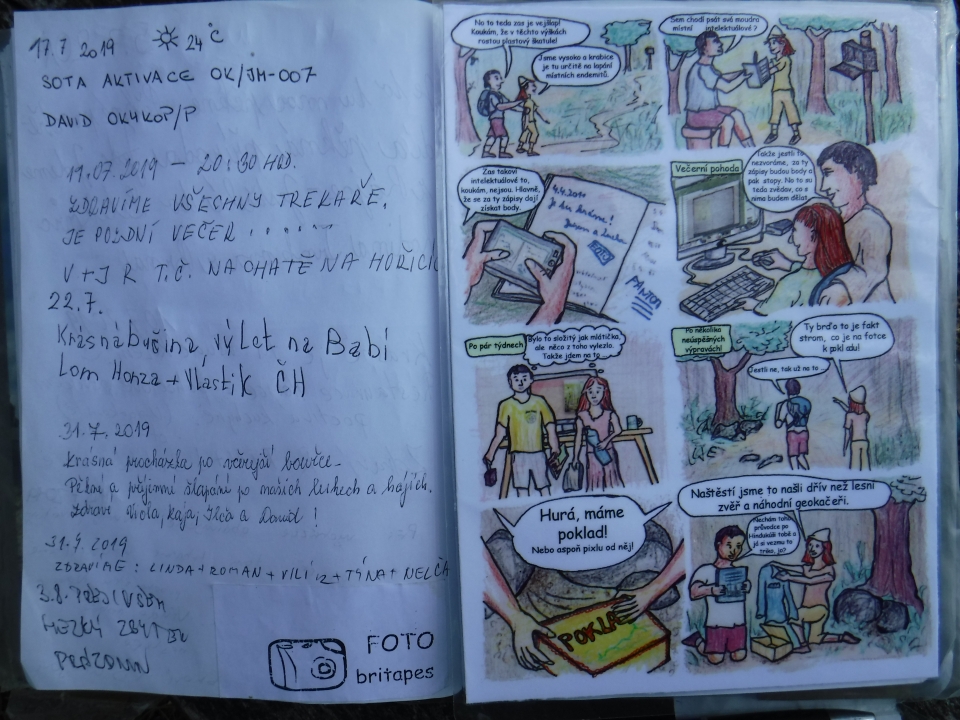 17.7 2019 24°C
SOTA AKTIVACE OK/JM-007
DAVID OK4KOP/P
19.07.2019 – 20:30 HOD.
ZDRAVÍME VŠECHNY TREKAŘE,
JE POZDNÍ VEČER ......
V + J R T.Č. NA CHATĚ NA HOŘICÍ
22.7.
Krásná bučina, výlet na Babí
Lom Honza + Vlastik ČH
31.7.2019
Krásná procházka po včerejší bouřce.
Pěkné a příjemné šlapání po našich luhech a hájích.
Zdraví Viola, Kája, Ilča a David!
ZDRAVÍME: LINDA + ROMAN + VILI + TÝNA + NELČA
3.8. PŘEJI VŠEM
HEZKÝ ZBYTEK
PRÁZDNIN
FOTO
britapes
No to teda zas je vejšlap!
Koukám, že v těchto výškách
rostou plastový škatule!
Jsme vysoko a krabice
je tu určitě na lapání
místních endemitů.
Sem chodí psát svá moudra
místní intelektuálové?
Zas takoví
intelektuálové to,
koukám, nejsou. Hlavně,
že se za ty zápisy dají
získat body.
4.4.2010
Je tu krásně!
PANTOA
Večerní pohoda
Takže jestli to
nezvoráme, za ty
zápisy budou body a
pak stopy. No to su
teda zvědav, co s
nima budem dělat.
Po pár týdnech
Bylo to složitý jak mlátička,
ale něco z toho vylezlo.
Takže jdem na to...
Po několika
neúspěšných
výpravách!
Ty brďo to je fakt
strom, co je na fotce
k pokladu!
Jestli ne, tak už na to ...
Hurá, máme
poklad!
Nebo aspoň pixlu od něj!
POKLAD
Naštěstí jsme to našli dřív než lesní
zvěř a náhodní geokačeři.
Nechám toho
průvodce po
Hindukúši tobě a
já si vezmu to
triko, jo?